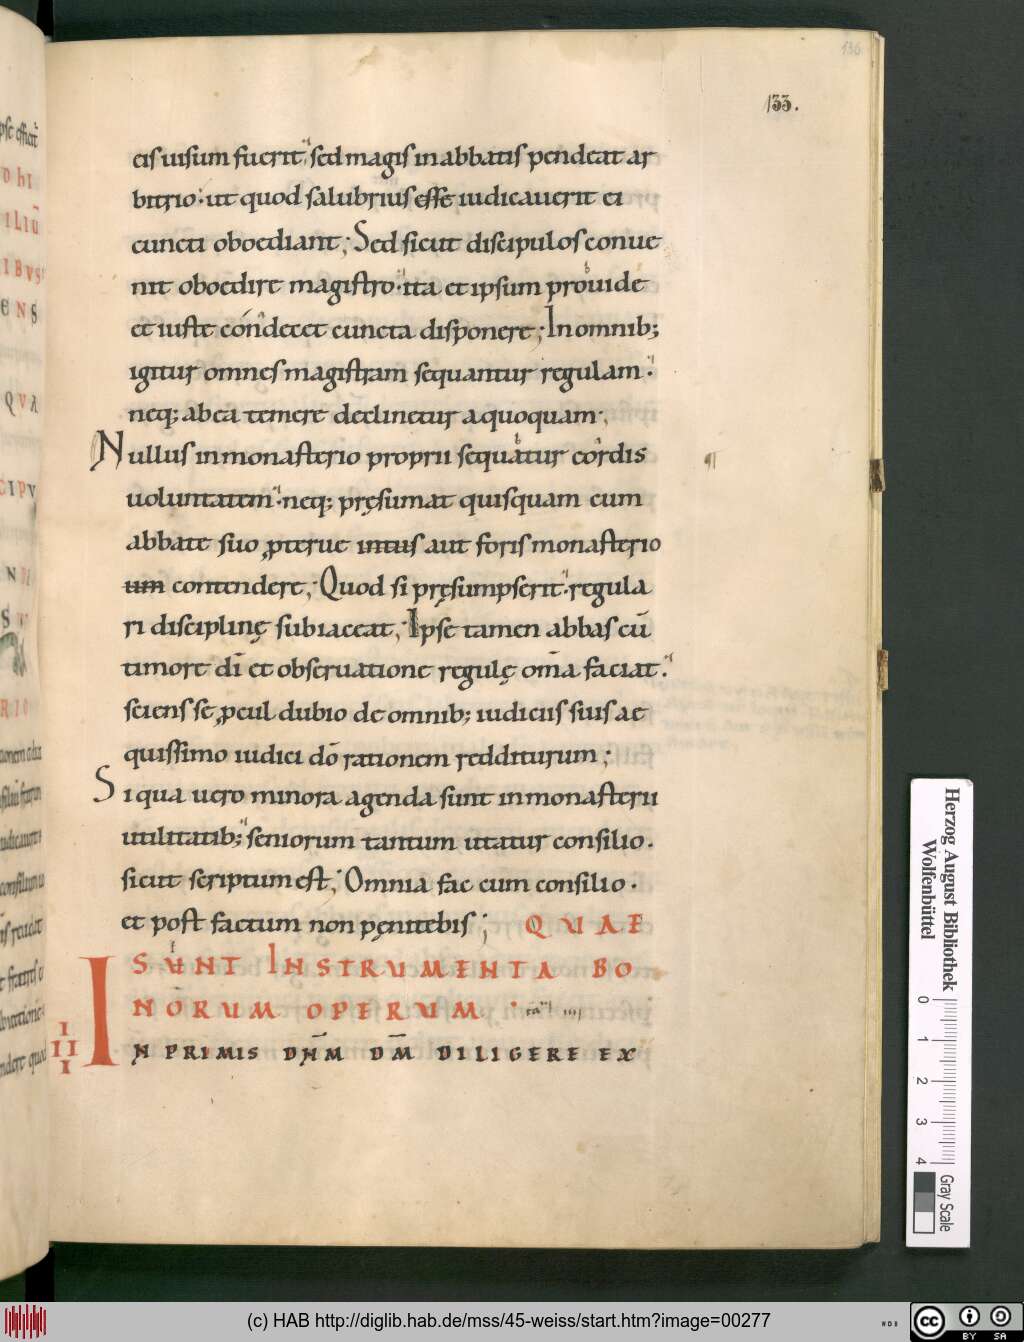 136
133.
eis uisum fuerit, sed magis in abbatis pendeat ar
bitrio· ut quod salubrius esse iudicauerit ei
cuncti oboediant; Sed sicut discipulos conue
nit oboedire magistro· ita et ipsum prouide
et iuste condecet cuncta disponere; In omnib;
igitur omnes magistram sequantur regulam·
neq; ab ea temere declinetur a quoquam·
Nullus in monasterio proprii sequatur cordis
uoluntatem· neq; pręsumat quisquam cum
abbate suo ꝓterue intus aut foris monasterio
um contendere; Quod si pręsumpserit· regula
ri disciplinę subiaceat; Ipse tamen abbas cū
timore dī et obseruatione regulę om̄a faciat·
sciens se ꝓcul dubio de omnib; iudiciis suis ae
quissimo iudici dō rationem redditurum;
Si qua uero minora agenda sunt in monasterii
utilitatib; seniorum tantum utatur consilio.
sicut scriptum est; Omnia fac cum consilio·
et post factum non pęnitebis; QUAE
SUNT INSTRUMENTA BO
NORUM OPERUM·
IIII
IN PRIMIS DN̄M DM̄ DILIGERE EX
Herzog August Bibliothek
Wolfenbüttel
0 1 2 3 4
Gray Scale
(c) HAB http://diglib.hab.de/mss/45-weiss/start.htm?image=00277
WDB
cc BY SA